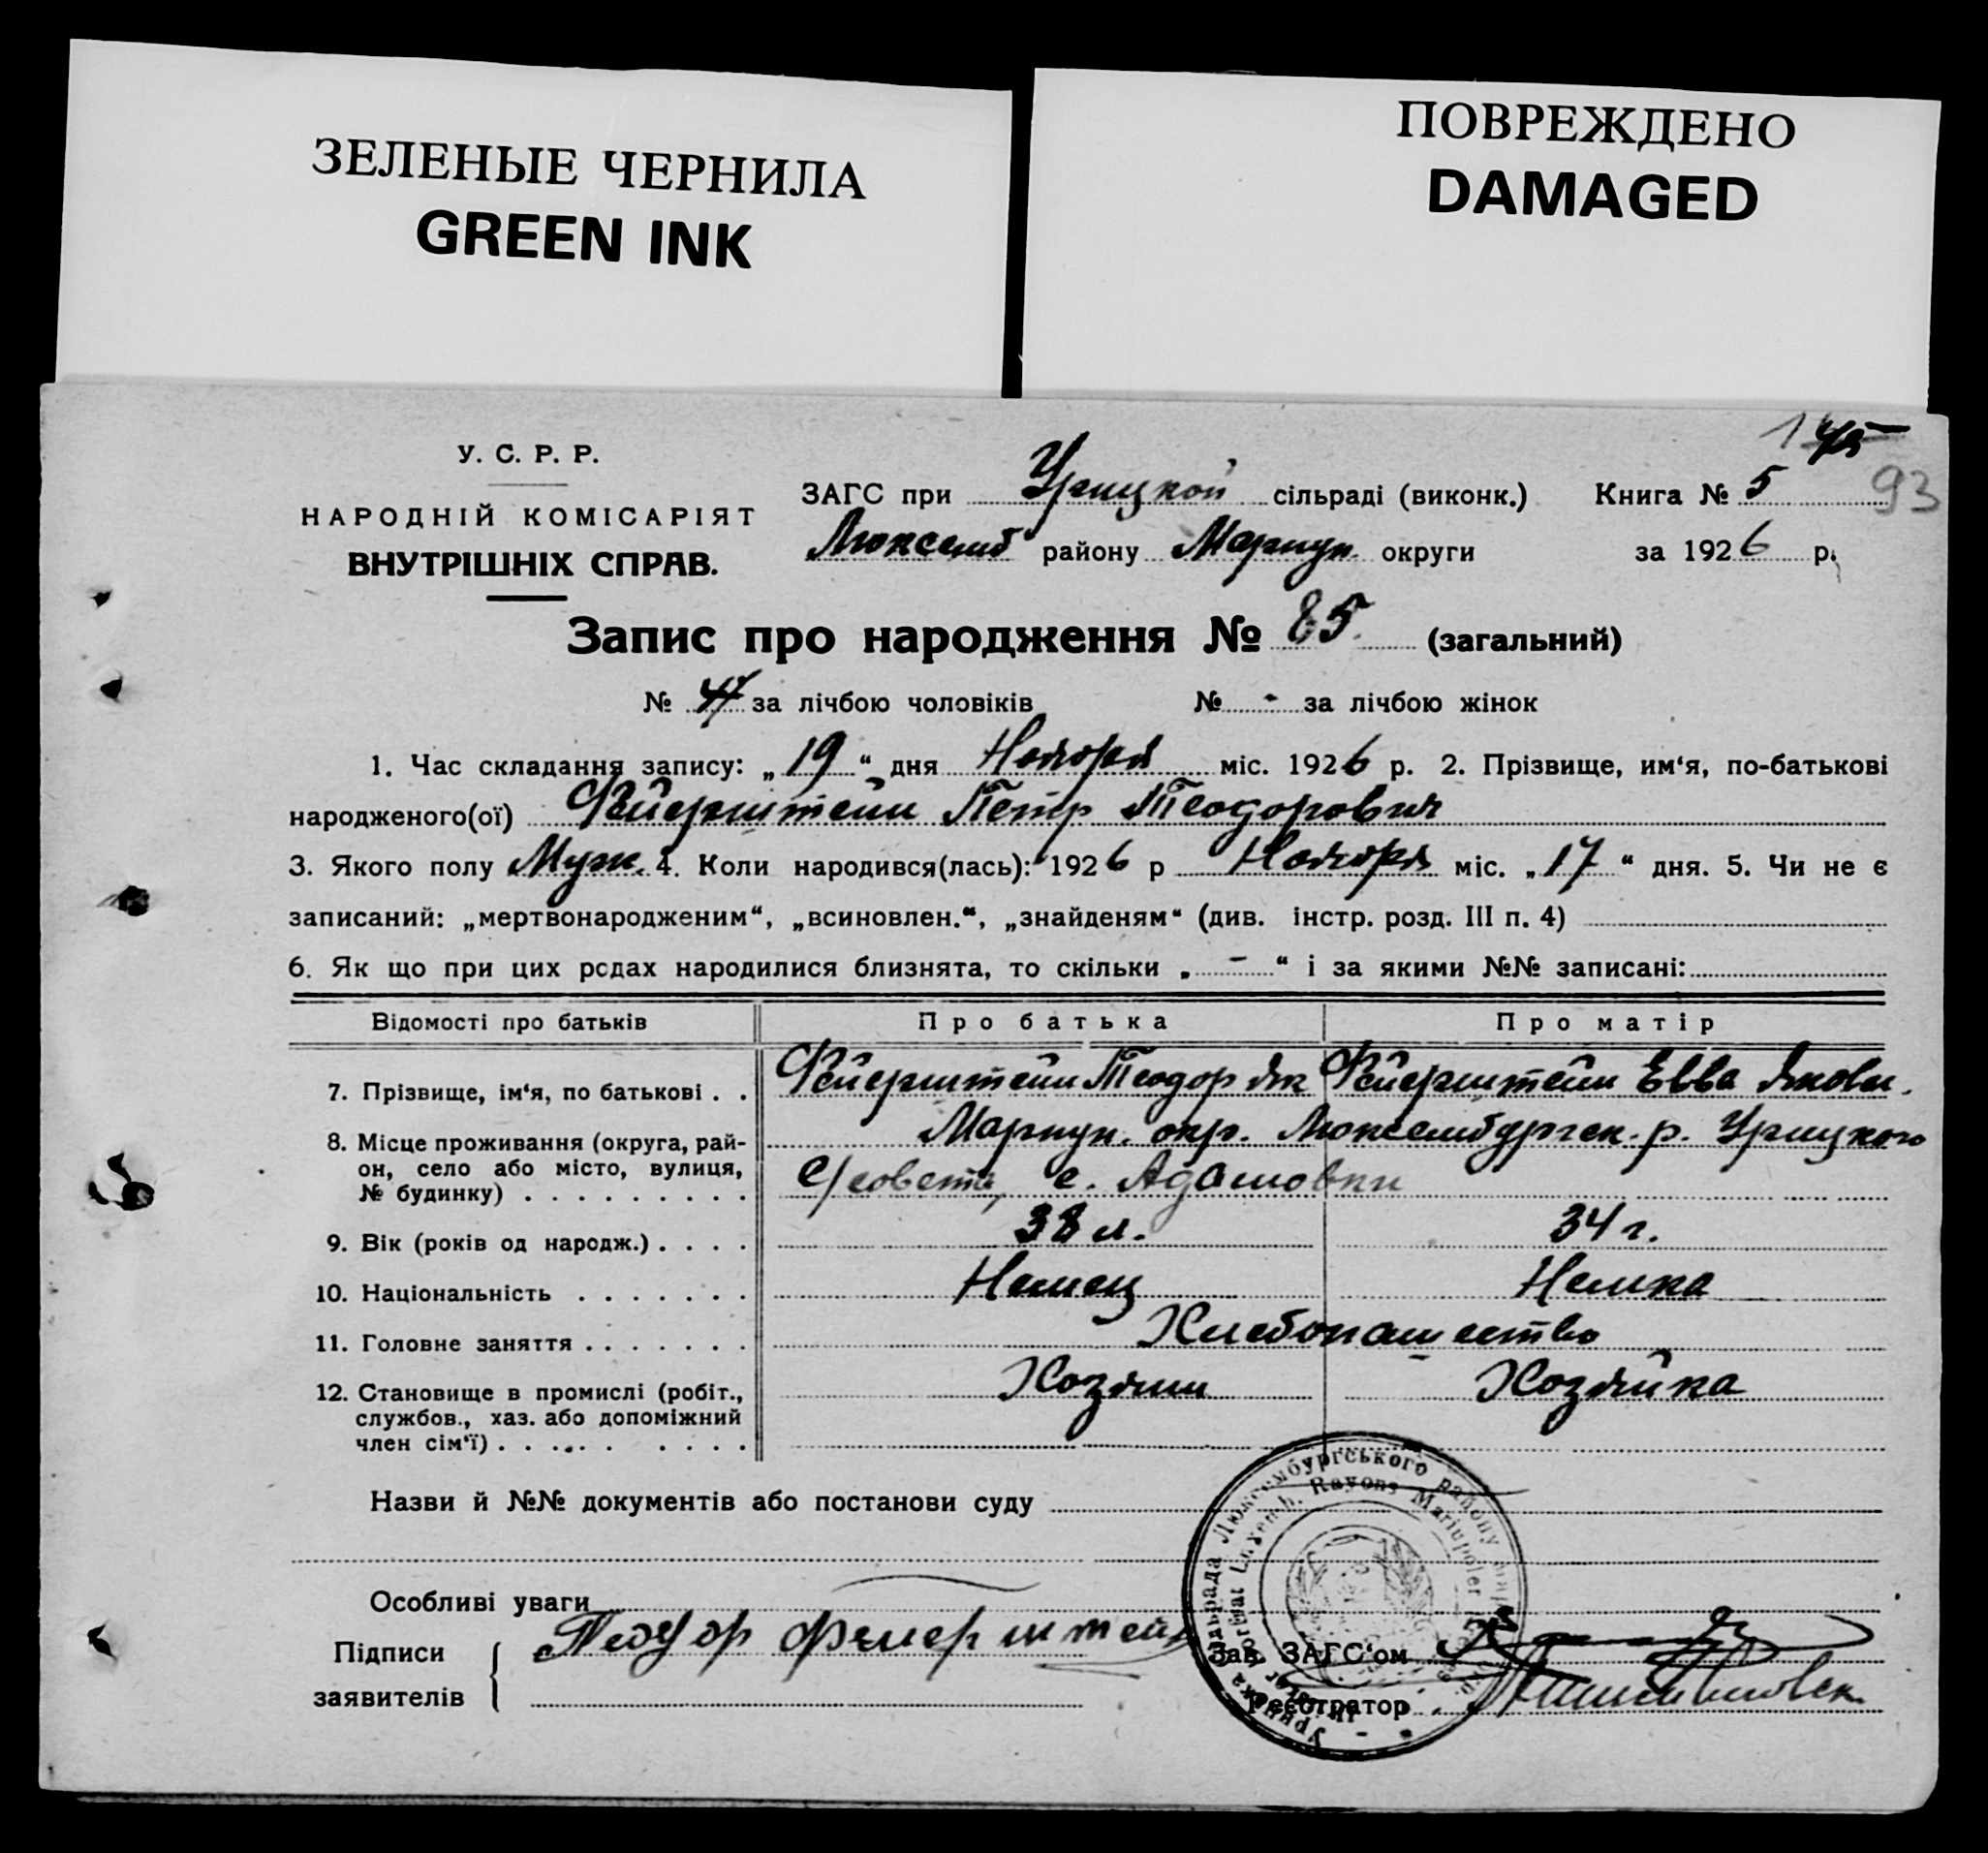 ЗЕЛЕНЫЕ ЧЕРНИЛА
GREEN INK
ПОВРЕЖДЕНО
DAMAGED
93
У. С. Р. Р.
НАРОДНІЙ КОМІСАРІЯТ
ВНУТРІШНІХ СПРАВ.
ЗАГС при Урицкой сільраді (виконк.) Книга № 5
Люксемб району Мариуп. округи за 1926 р.
Запис про народження № 85 (загальний)
№ 47 за лічбою чоловіків № - за лічбою жінок
1. Час складання запису: „19“ дня Ноября міс. 1926 р. 2. Прізвище, им‘я, по-батькові
народженого(ої) Фейерштейн Петр Теодорович
3. Якого полу Муж. 4. Коли народився(лась): 1926 р Ноября міс. „17“ дня. 5. Чи не є
записаний: „мертвонародженим“, „всиновлен.“, „знайденям“ (див. інстр. розд. III п. 4)
6. Як що при цих рсдах народилися близнята, то скільки „ - “ і за якими №№ записані:
Відомості про батьків Про батька Про матір
7. Прізвище, ім‘я, по батькові . . Фейерштейн Теодор Як Фейерштейн Евва Яковл.
8. Місце проживання (округа, рай-
он, село або місто, вулиця,
№ будинку) . . . . . . . . .
Мариуп. окр. Люксембургск. р. Урицкого
с/совета, с. Адамовки
9. Вік (років од народж.) . . . . 38 л. 34 г.
10. Національність . . . . . . . Немец Немка
11. Головне заняття . . . . . . . Хлебопашество
12. Становище в промислі (робіт.,
службов., хаз. або допоміжний
член сім‘ї) . . . . . . . . .
Хозяин Хозяйка
Назви й №№ документів або постанови суду
Особливі уваги
Підписи
заявителів
Теодор Фейерштейн
Зав. ЗАГС‘ом
Реєстратор
Люксембургського району
Rayons Mariupoler